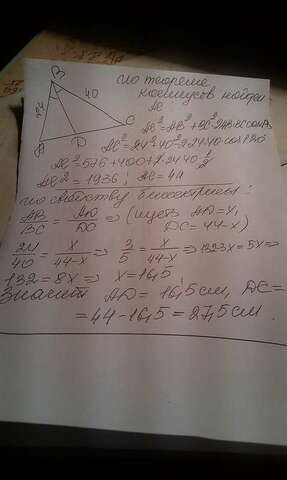 B
40
24
A
D
C
по теореме
косинусов найдем
AC
AC² = AB² + BC² - 2AB·BC cosB
AC² = 24² + 40² - 2·24·40·cos120
AC² = 576 + 400 + 2·24·40·1/2
AC² = 1936; AC = 44
по свойству биссектрисы:
AB/BC = AD/DC ⇒ (пусть AD = x,
DC = 44-x)
24/40 = x/44-x ⇒ 3/5 = x/44-x ⇒ 132-3x = 5x ⇒
132 = 8x ⇒ x = 16,5
Значит AD = 16,5 см, DC =
= 44 - 16,5 = 27,5 см.